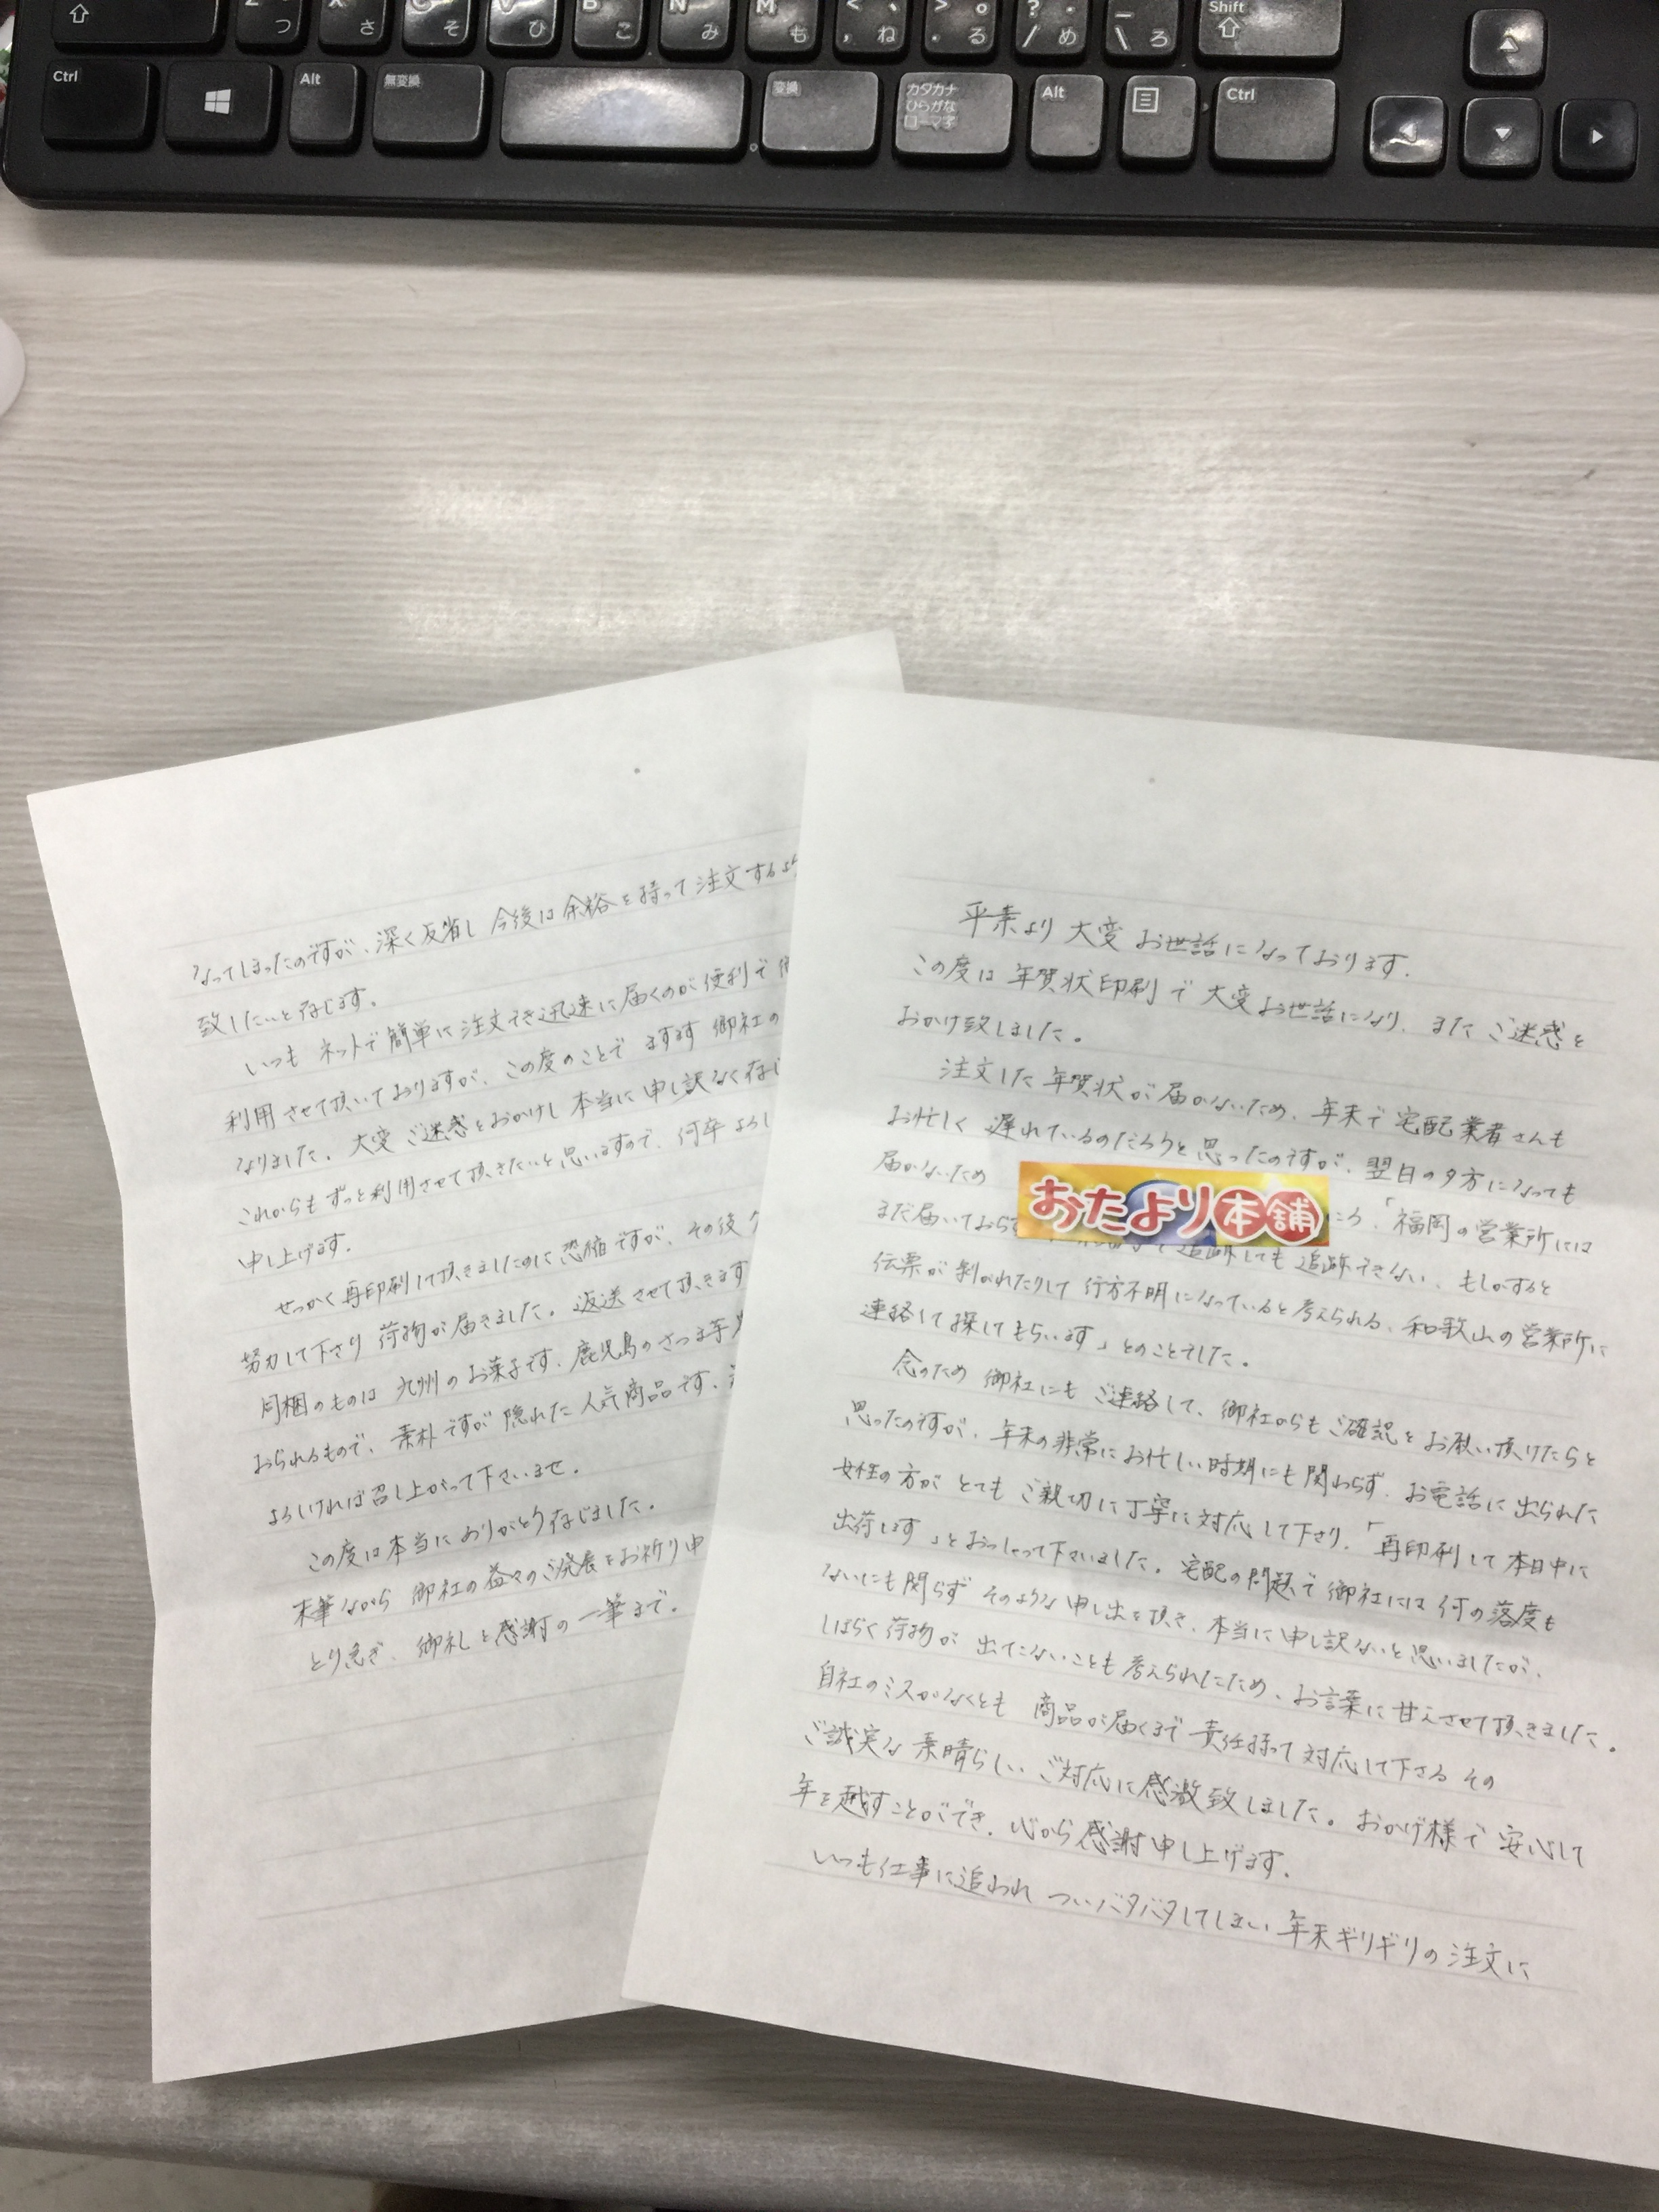 Ctrl
Alt
無変換
変換
カタカナ
ひらがな
ローマ字
Alt
Ctrl
Shift
つ
さ
そ
ひ
こ
N み
M も
< 、 , ね
> 。 . る
? ・ / め
_ \ ろ
平素より 大変 お世話になっております.
この度は 年賀状印刷 で 大変 お世話になり、また ご迷惑を
おかけ致しました。
注文した 年賀状が 届かないため、年末で 宅配業者さんも
お忙しく 遅れているのだろうと 思ったのですが、翌日の夕方になっても
届かないため
おたより本舗
まだ届いておらず
ころ、「福岡の営業所には
追跡しても 追跡できない、もしかすると
伝票が 剥がれたりして 行方不明になっていると考えられる、和歌山の営業所に
連絡して探してもらいます」とのことでした。
念のため 御社にも ご連絡して、御社からも ご確認を お願い頂けたらと
思ったのですが、年末の非常にお忙しい時期にも関わらず、お電話に出られた
女性の方が とても ご親切に丁寧に対応して下さり、「再印刷して本日中に
出荷します」とおっしゃって下さいました。宅配の問題で御社には何の落度も
ないにも関らず そのような申し出を頂き、本当に申し訳ないと思いましたが、
しばらく荷物が 出てこないことも考えられたため、お言葉に甘えさせて頂きました。
自社のミスがなくとも 商品が届くまで責任持って対応して下さる その
ご誠実な 素晴らしい ご対応に感激致しました。おかげ様で 安心して
年を越すことができ、心から感謝申し上げます.
いつも仕事に追われ ついバタバタしてしまい 年末ギリギリの注文に
なってしまったのですが、深く反省し 今後は余裕を持って注文するよう
致したいと存じます。
いつも ネットで簡単に注文でき迅速に届くのが便利で
利用させて頂いておりますが、この度のことで ますます 御社の
なりました。大変 ご迷惑をおかけし本当に申し訳なく存じ
これからもずっと利用させて頂きたいと思いますので、何卒よろし
申し上げます.
せっかく再印刷して頂きましたのに恐縮ですが、その後
努力して下さり 荷物が届きました。返送させて頂きます
同梱のものは 九州のお菓子です、鹿児島のさつま芋
おられるもので、素朴ですが 隠れた人気商品です、
よろしければ召し上がって下さいませ.
この度は本当にありがとう存じました.
末筆ながら 御社の益々のご発展をお祈り申
とり急ぎ、御礼と感謝の一筆まで.